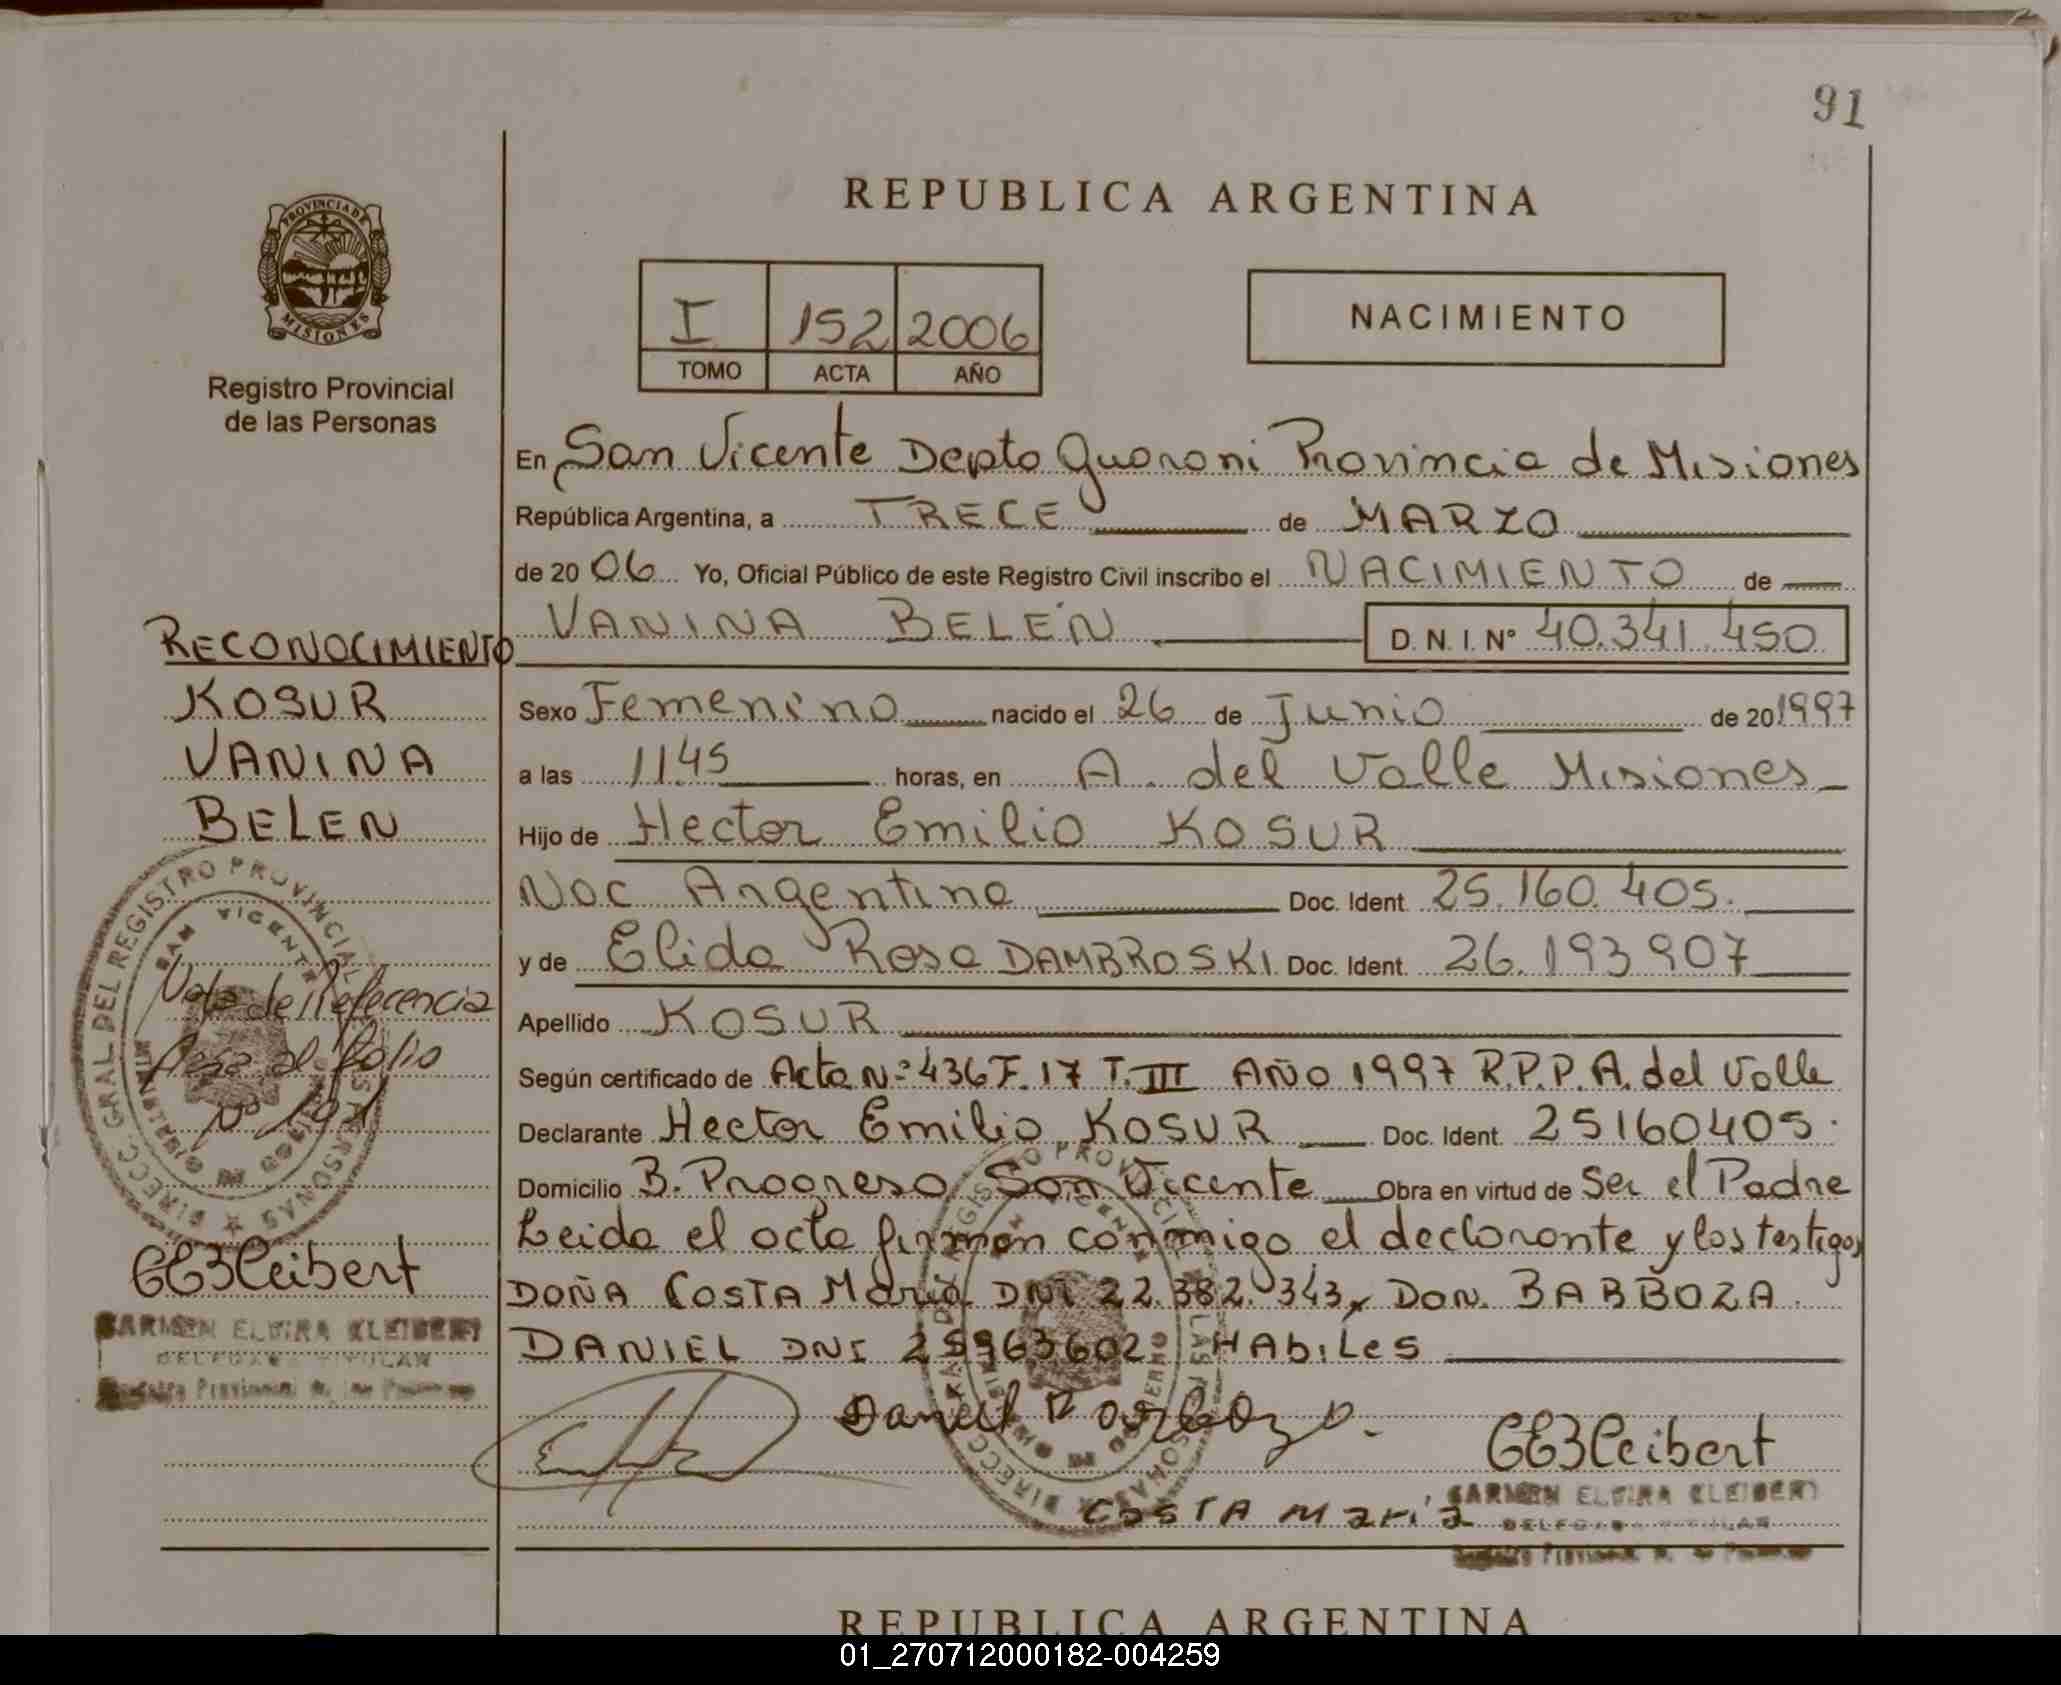 91
REPUBLICA ARGENTINA
PROVINCIA DE
MISIONES
Registro Provincial
de las Personas
I 152 2006
TOMO ACTA AÑO
NACIMIENTO
En San Vicente Depto Guarani Provincia de Misiones
República Argentina, a TRECE de MARZO
de 20 06 Yo, Oficial Público de este Registro Civil inscribo el NACIMIENTO de
VANINA BELÉN D. N. I. Nº 40.341.450
RECONOCIMIENTO
KOSUR
VANINA
BELEN
Sexo Femenino nacido el 26 de Junio de 20 1997
a las 11.45 horas, en A. del Valle Misiones
Hijo de Hector Emilio KOSUR
Nac Argentina Doc. Ident. 25.160.405.
y de Elida Rosa DAMBROSKI Doc. Ident. 26.193.907
Apellido KOSUR
Según certificado de Acta Nº 436 F. 17 T. III AÑO 1997 R.P.P. A. del Valle
Declarante Hector Emilio KOSUR Doc. Ident. 25160405.
Domicilio B. Progreso San Vicente Obra en virtud de Ser el Padre
Leida el acta firman conmigo el declarante y los testigos
DOÑA COSTA María DNI 22.382.343, DON. BARBOZA
DANIEL DNI 25963602 HAbiLes
Nota de Referencia
Pasa al folio
Nº 191
DIRECC. GRAL DEL REGISTRO PROVINCIAL
SAN VICENTE
CEKleibert
CARMEN ELVIRA KLEIBERT
DELEGADA TITULAR
Registro Provincial de las Personas
Daniel Barboza.
CEKleibert
COSTA María
CARMEN ELVIRA KLEIBERT
DELEGADA TITULAR
Registro Provincial de las Personas
REPUBLICA ARGENTINA
01_270712000182-004259